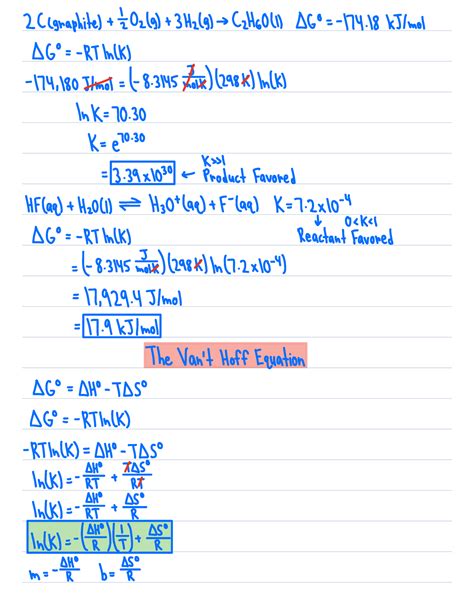 2C(graphite) + ½O₂(g) + 3H₂(g) → C₂H₆O(l) ΔG° = -174.18 kJ/mol
ΔG° = -RTln(K)
-174,180 J/mol = (-8.3145 J/molK)(298K)ln(K)
lnK = 70.30
K = e^70.30
= 3.39×10³⁰ ← K>>1 Product Favored
HF(aq) + H₂O(l) ⇌ H₃O⁺(aq) + F⁻(aq) K = 7.2×10⁻⁴
↓ 0<K<1
Reactant Favored
ΔG° = -RTln(K)
= (-8.3145 J/molK)(298K)ln(7.2×10⁻⁴)
= 17,929.4 J/mol
= 17.9 kJ/mol
The Van't Hoff Equation
ΔG° = ΔH° - TΔS°
ΔG° = -RTln(K)
-RTln(K) = ΔH° - TΔS°
ln(K) = -ΔH°/RT + TΔS°/RT
ln(K) = -ΔH°/RT + ΔS°/R
ln(K) = -(ΔH°/R)(1/T) + ΔS°/R
m = -ΔH°/R b = ΔS°/R